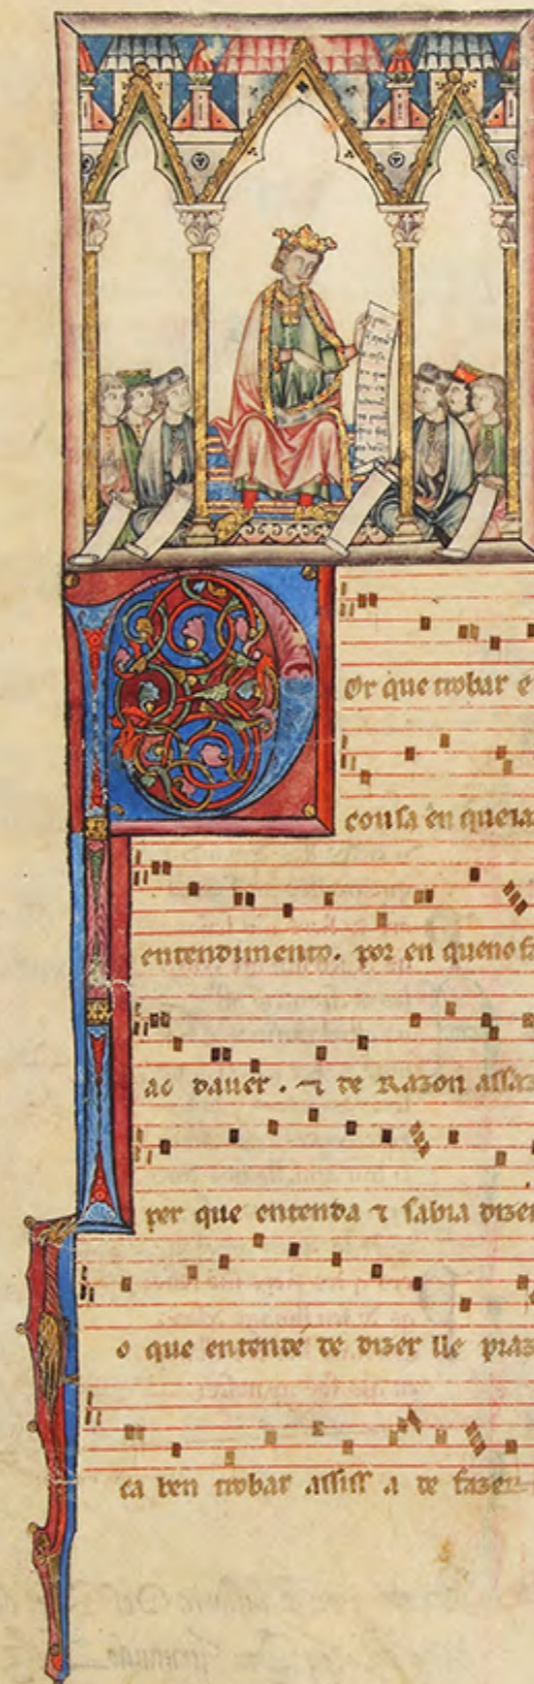 P
Or que trobar e
cousa en que ia
entendimento. por en queno fa
ao dauer. ⁊ de Razon assaz
per que entenda ⁊ sabia dizer
o que entende de dizer lle praz
ca ben trobar assiss a de fazer